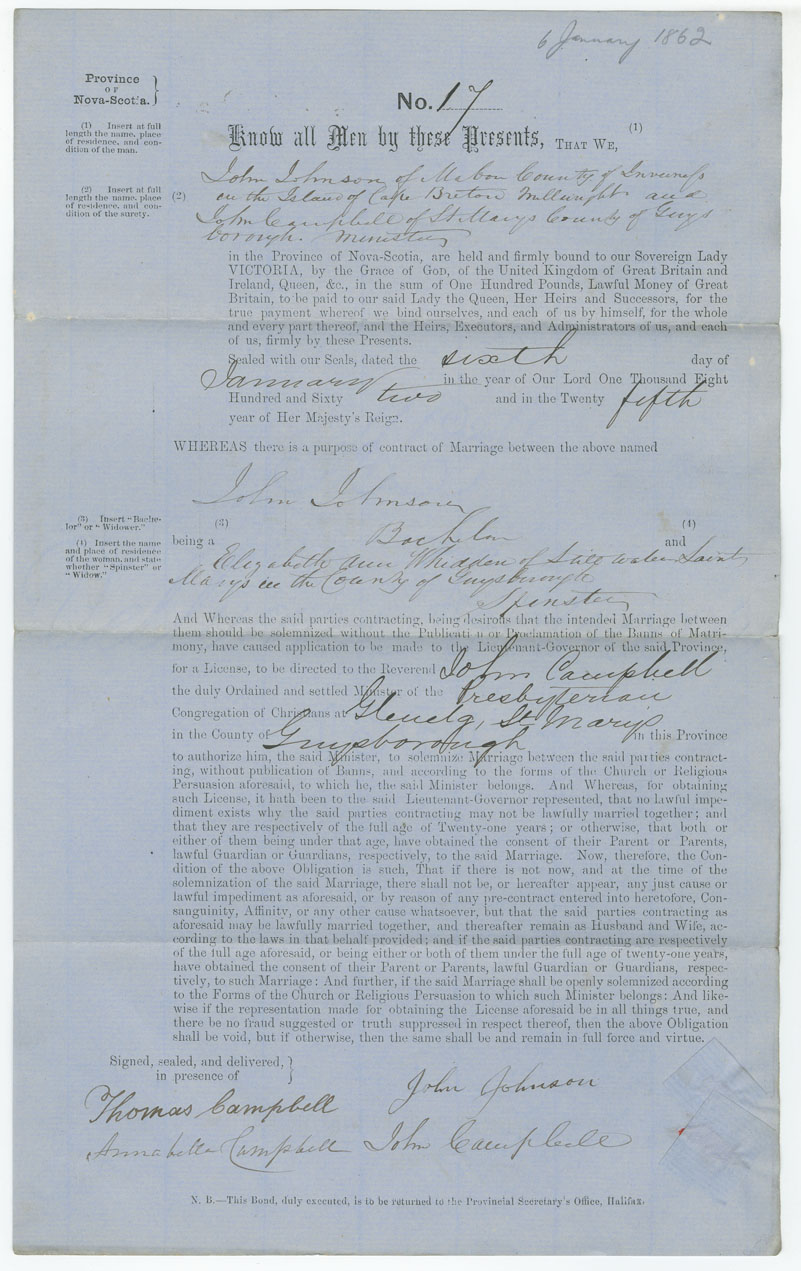 6 January 1862
Province
OF
Nova-Scotia.
No. 17
(1) Insert at full
length the name, place
of residence, and con-
dition of the man.
Know all Men by these Presents, THAT WE, (1)
John Johnson of Mabou County of Inverness
(2) Insert at full
length the name, place
of residence, and con-
dition of the surety.
(2) on the Island of Cape Breton Millwright and
John Campbell of St Marys County of Guys
borough. Minister
in the Province of Nova-Scotia, are held and firmly bound to our Sovereign Lady
VICTORIA, by the Grace of GOD, of the United Kingdom of Great Britain and
Ireland, Queen, &c., in the sum of One Hundred Pounds, Lawful Money of Great
Britain, to be paid to our said Lady the Queen, Her Heirs and Successors, for the
true payment whereof we bind ourselves, and each of us by himself, for the whole
and every part thereof, and the Heirs, Executors, and Administrators of us, and each
of us, firmly by these Presents.
Sealed with our Seals, dated the sixth day of
January in the year of Our Lord One Thousand Eight
Hundred and Sixty two and in the Twenty fifth
year of Her Majesty's Reign.
WHEREAS there is a purpose of contract of Marriage between the above named
John Johnson
(3) Insert "Bache-
lor" or "Widower."
(3) (4)
being a Bachelor and
(4) Insert the name
and place of residence
of the woman, and state
whether "Spinster" or
"Widow."
Elizabeth Ann Whidden of Stillwater Saint
Marys in the County of Guysborough
Spinster
And Whereas the said parties contracting, being desirous that the intended Marriage between
them should be solemnized without the Publicati n or Proclamation of the Banns of Matri-
mony, have caused application to be made to the Lieutenant-Governor of the said Province,
for a License, to be directed to the Reverend John Campbell
the duly Ordained and settled Minister of the Presbyterian
Congregation of Christians at Glenelg, St Marys
in the County of Guysborough in this Province
to authorize him, the said Minister, to solemnize Marriage between the said parties contract-
ing, without publication of Banns, and according to the forms of the Church or Religious
Persuasion aforesaid, to which he, the said Minister belongs. And Whereas, for obtaining
such License, it hath been to the said Lieutenant-Governor represented, that no lawful impe-
diment exists why the said parties contracting may not be lawfully married together; and
that they are respectively of the full age of Twenty-one years; or otherwise, that both or
either of them being under that age, have obtained the consent of their Parent or Parents,
lawful Guardian or Guardians, respectively, to the said Marriage. Now, therefore, the Con-
dition of the above Obligation is such, That if there is not now, and at the time of the
solemnization of the said Marriage, there shall not be, or hereafter appear, any just cause or
lawful impediment as aforesaid, or by reason of any pre-contract entered into heretofore, Con-
sanguinity, Affinity, or any other cause whatsoever, but that the said parties contracting as
aforesaid may be lawfully married together, and thereafter remain as Husband and Wife, ac-
cording to the laws in that behalf provided; and if the said parties contracting are respectively
of the full age aforesaid, or being either or both of them under the full age of twenty-one years,
have obtained the consent of their Parent or Parents, lawful Guardian or Guardians, respec-
tively, to such Marriage: And further, if the said Marriage shall be openly solemnized according
to the Forms of the Church or Religious Persuasion to which such Minister belongs: And like-
wise if the representation made for obtaining the License aforesaid be in all things true, and
there be no fraud suggested or truth suppressed in respect thereof, then the above Obligation
shall be void, but if otherwise, then the same shall be and remain in full force and virtue.
Signed, sealed, and delivered,
in presence of
Thomas Campbell John Johnson
Annabella Campbell John Campbell
N. B.—This Bond, duly executed, is to be returned to the Provincial Secretary's Office, Halifax.